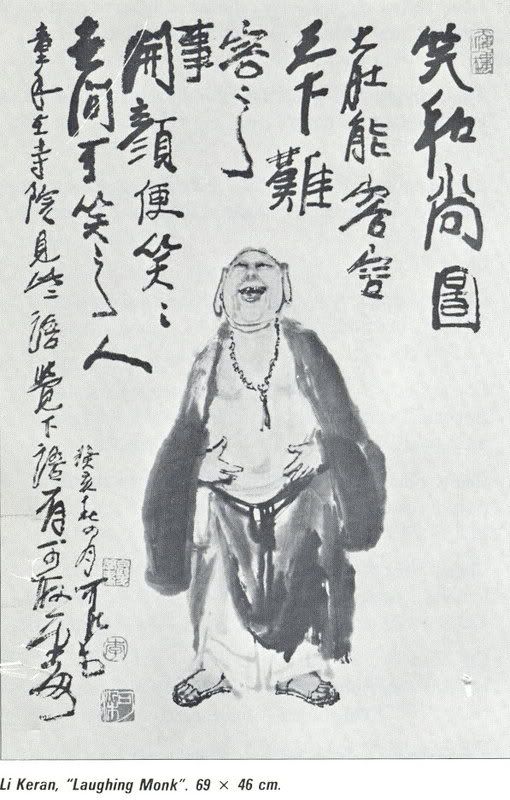 笑和尚圖
大肚能容容
天下難
容之
事
開顏便笑〻
世間可笑之人
童年 寺院見此語覺下語有可取
癸亥 月可染
Li Keran, "Laughing Monk". 69 × 46 cm.